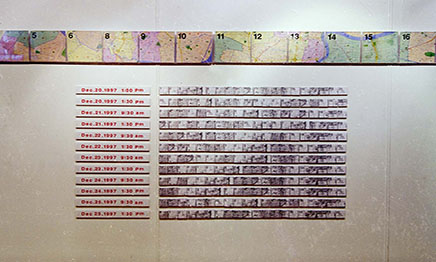 5 6 7 8 9 10 11 12 13 14 15 16
Dec.20.1997 1:00 Pm
Dec.20.1997 1:30 PM
Dec.21.1997 9:30 am
Dec.21.1997 1:30 PM
Dec.22.1997 9:30 am
Dec.22.1997 1:30 PM
Dec.23.1997 9:30 am
Dec.23.1997 1:30 PM
Dec.24.1997 9:30 am
Dec.24.1997 1:30 PM
Dec.25.1997 9:30 am
Dec.25.1997 1:30 PM